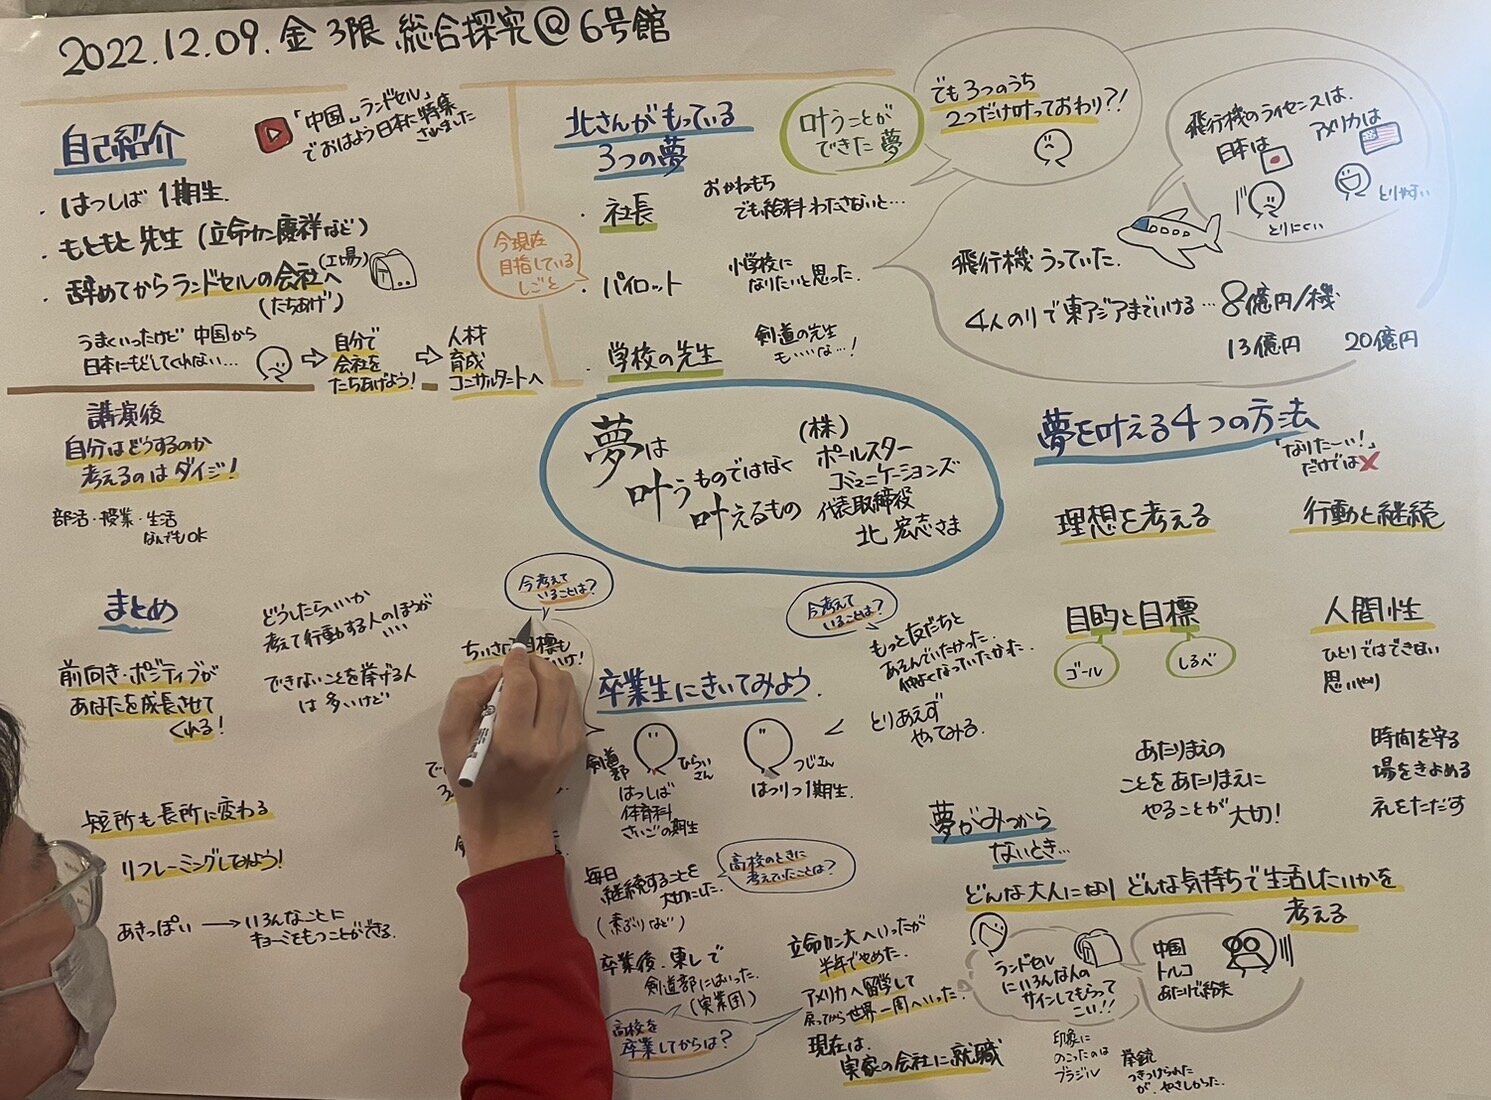 2022.12.09.金 3限 総合探究@6号館
自己紹介
「中国、ランドセル」
でおはよう日本に特集
されました
・はっしば 1期生.
・もともと先生 (立命カン慶祥など)
・辞めてからランドセルの会社へ
(工場)
(たちあげ)
うまくいったけど 中国から
日本にもどしてくれない…
自分で
会社を
たちあげよう!
人材
育成
コンサルタントへ
北さんがもっている
3つの夢
叶うことが
できた夢
・社長
おかねもち
でも給料わたさないと…
今現在
目指している
しごと
・パイロット
小学校に
なりたいと思った.
・学校の先生
剣道の先生
もいいな…!
でも3つのうち
2つだけ叶っておわり?!
飛行機のライセンスは.
日本は
アメリカは
とりにくい
とりやすい
飛行機うっていた.
4人のりで東アジアまでいける…8億円/機
13億円 20億円
講演後
自分はどうするのか
考えるのはダイジ!
部活・授業・生活
なんでもOK
夢は
叶うものではなく
叶えるもの
(株)
ポールスター
コミュニケーションズ
代表取締役
北 宏志さま
夢を叶える4つの方法
「なりたーい!」
だけでは✗
理想を考える
行動と継続
目的と目標
ゴール
しるべ
人間性
ひとりではできない
思いやり
あたりまえの
ことをあたりまえに
やることが大切!
時間を守る
場をきよめる
礼をただす
まとめ
前向き・ポジティブが
あなたを成長させて
くれる!
どうしたらいいか
考えて行動する人のほうが
いい
できないことを挙げる人
は多いけど
短所も長所に変わる
リフレーミングしてみよう!
あきっぽい → いろんなことに
キョーミをもつことができる.
今考えて
いることは?
ちいさな目標も
卒業生にきいてみよう.
剣道部
ひらいさん
はっしば
体育科
さいごの期生
つじさん
はつりつ1期生.
今考えて
いることは?
もっと友だちと
あそんでいたかった.
仲よくなっていたかった.
とりあえず
やってみる.
毎日
継続することを
大切にした.
(素ぶりなど)
高校のときに
考えていたことは?
卒業後.東レで
剣道部にはいった.
(実業団)
高校を
卒業してからは?
立命カン大へいったが
半年でやめた.
アメリカへ留学して
戻ってから世界一周へいった.
現在は.
実家の会社に就職
夢がみつから
ないとき…
どんな大人になり どんな気持ちで生活したいかを
考える
ランドセル
にいろんな人の
サインしてもらって
こい!!
中国
トルコ
あたりで紛失
印象に
のこったのは
ブラジル
拳銃
つきつけられた
が、やさしかった.